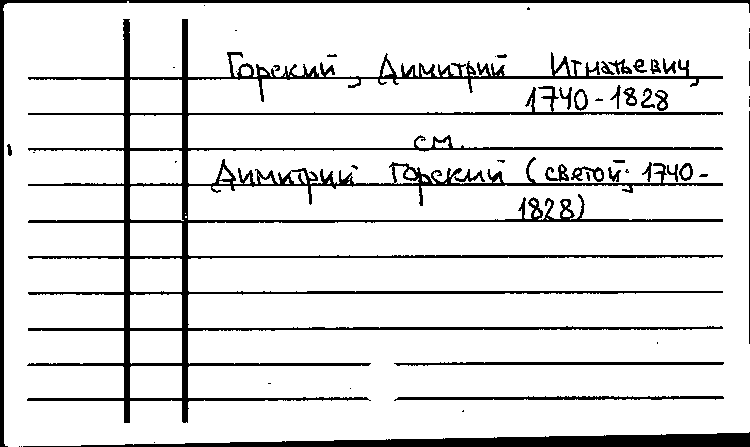 Горский, Димитрий Игнатьевич,
1740-1828
см.
Димитрий Горский (светой; 1740-
1828)